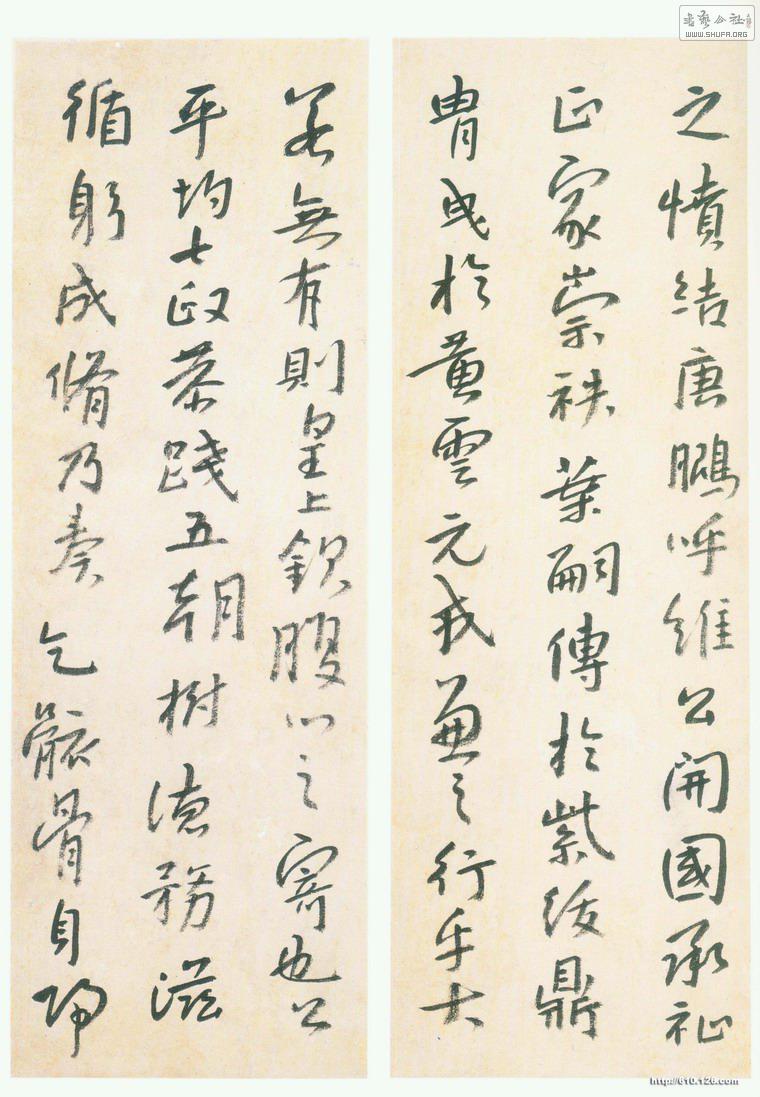 之憤結唐鵬呼維公開國承祉
正家崇祑葉嗣傳於紫綬鼎
胄或於黃雲元戎兼之行乎大
若無有則皇上欽腹心之寄也公
平均七政恭踐五朝樹德務滋
循躬成脩乃奏乞骸骨自歸
書藝公社
WWW.SHUFA.ORG
http://610.126.com